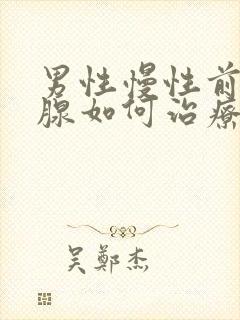 男性慢性前
腺如何治療
吴鄭杰